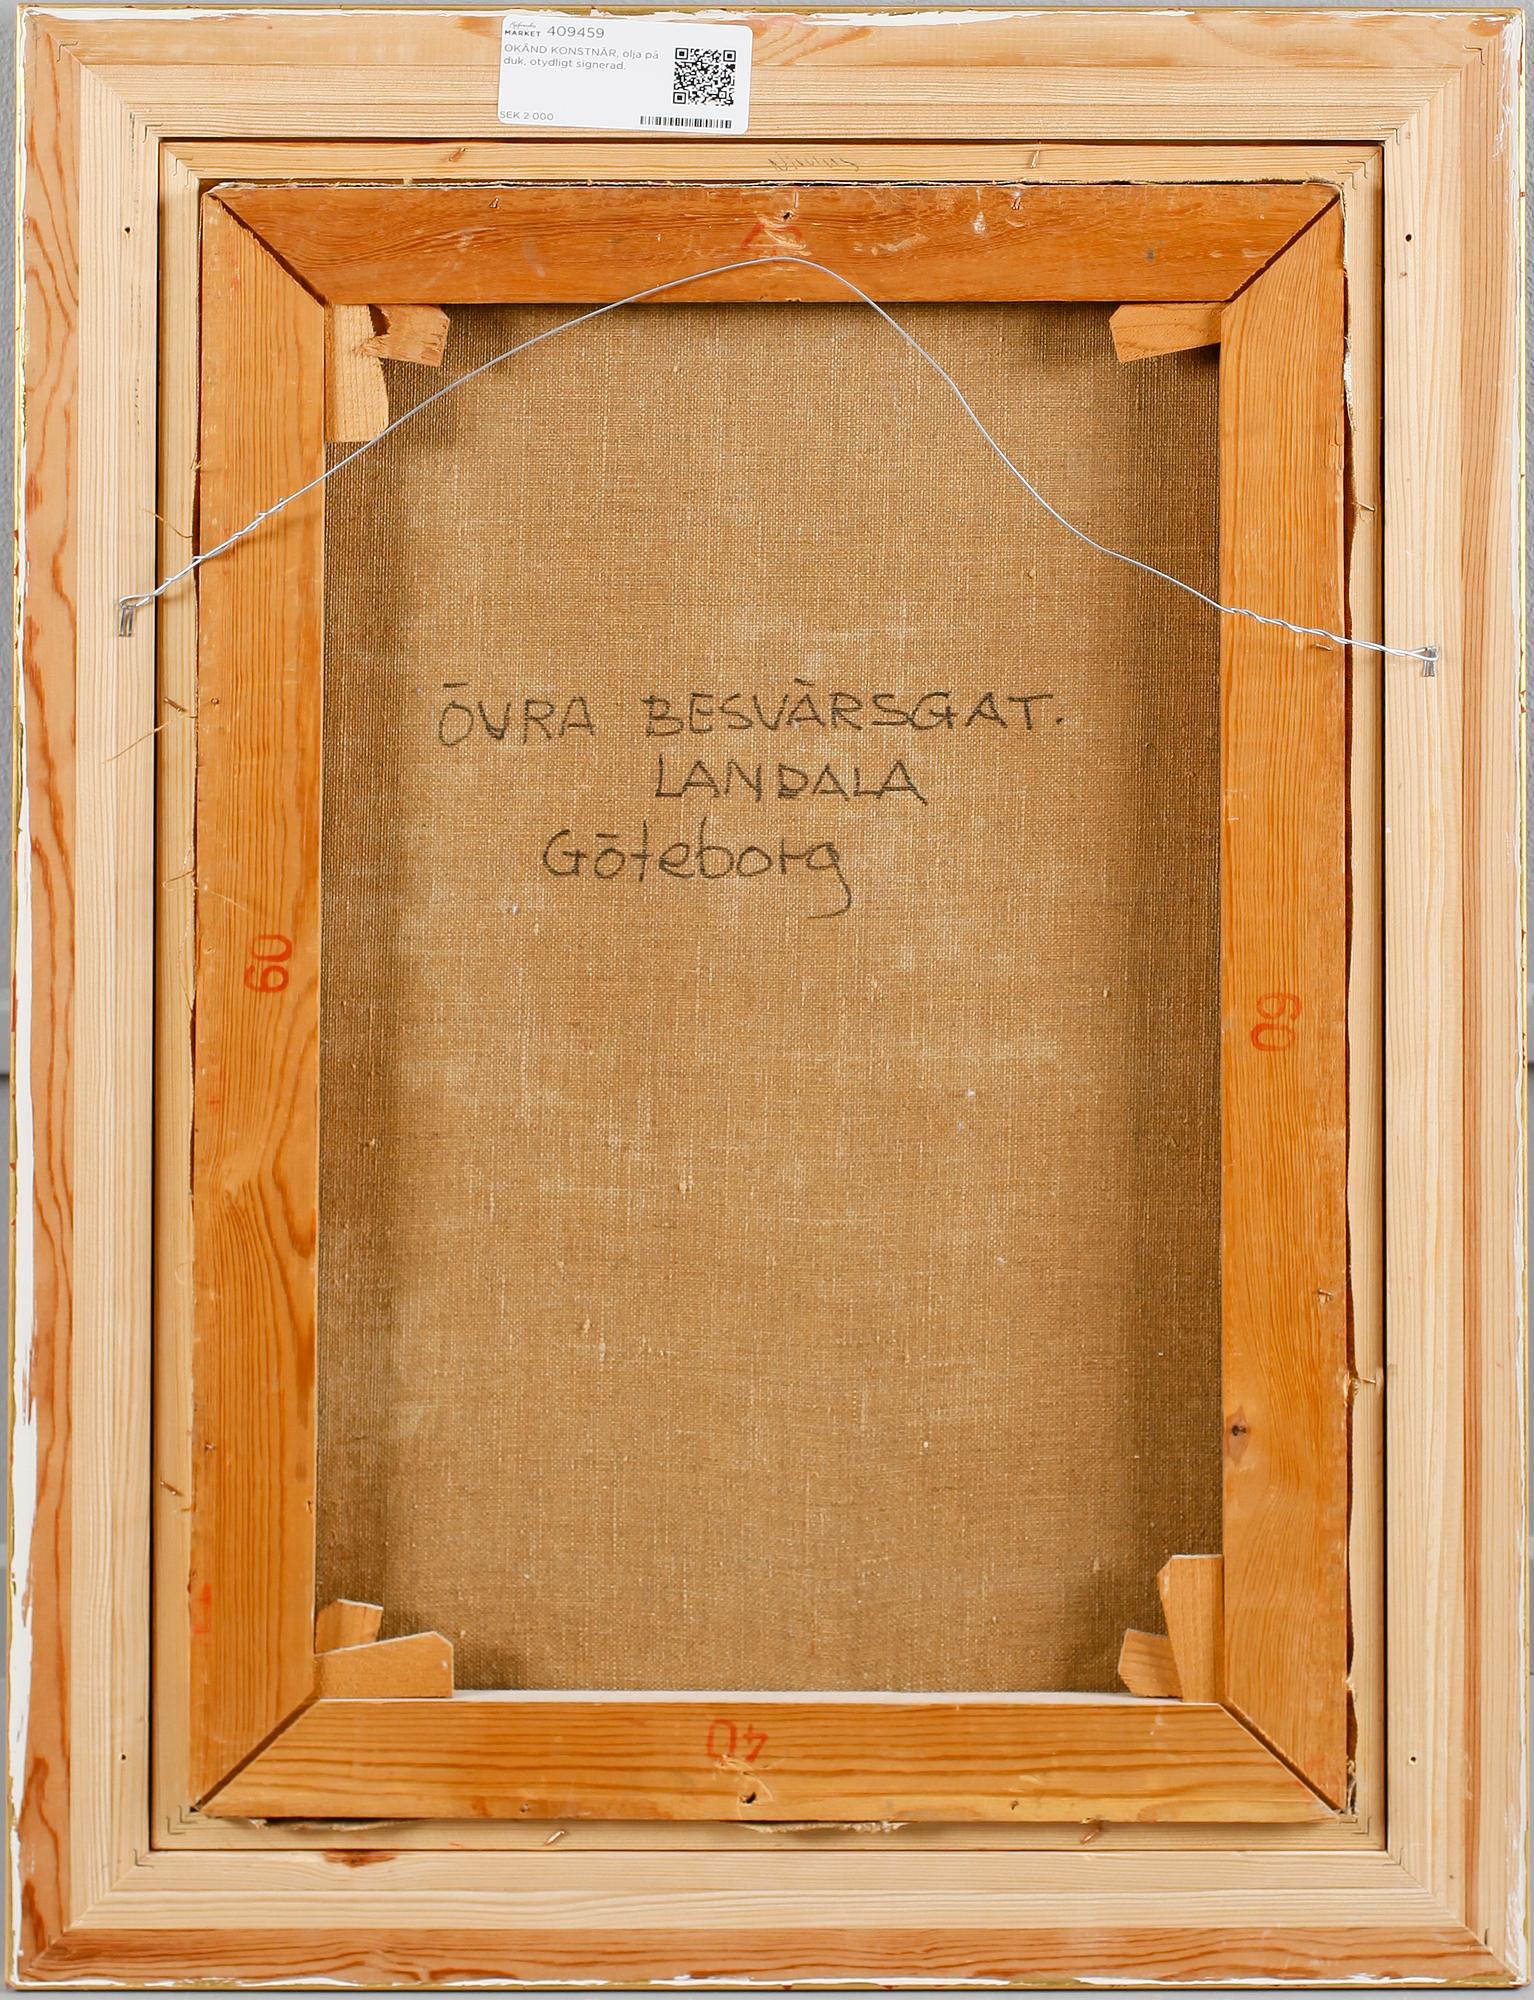 MARKET 409459
OKÄND KONSTNÄR, olja på
duk, otydligt signerad.
SEK 2 000
ÖVRA BESVÄRSGAT.
LANDALA
Göteborg
60
60
40